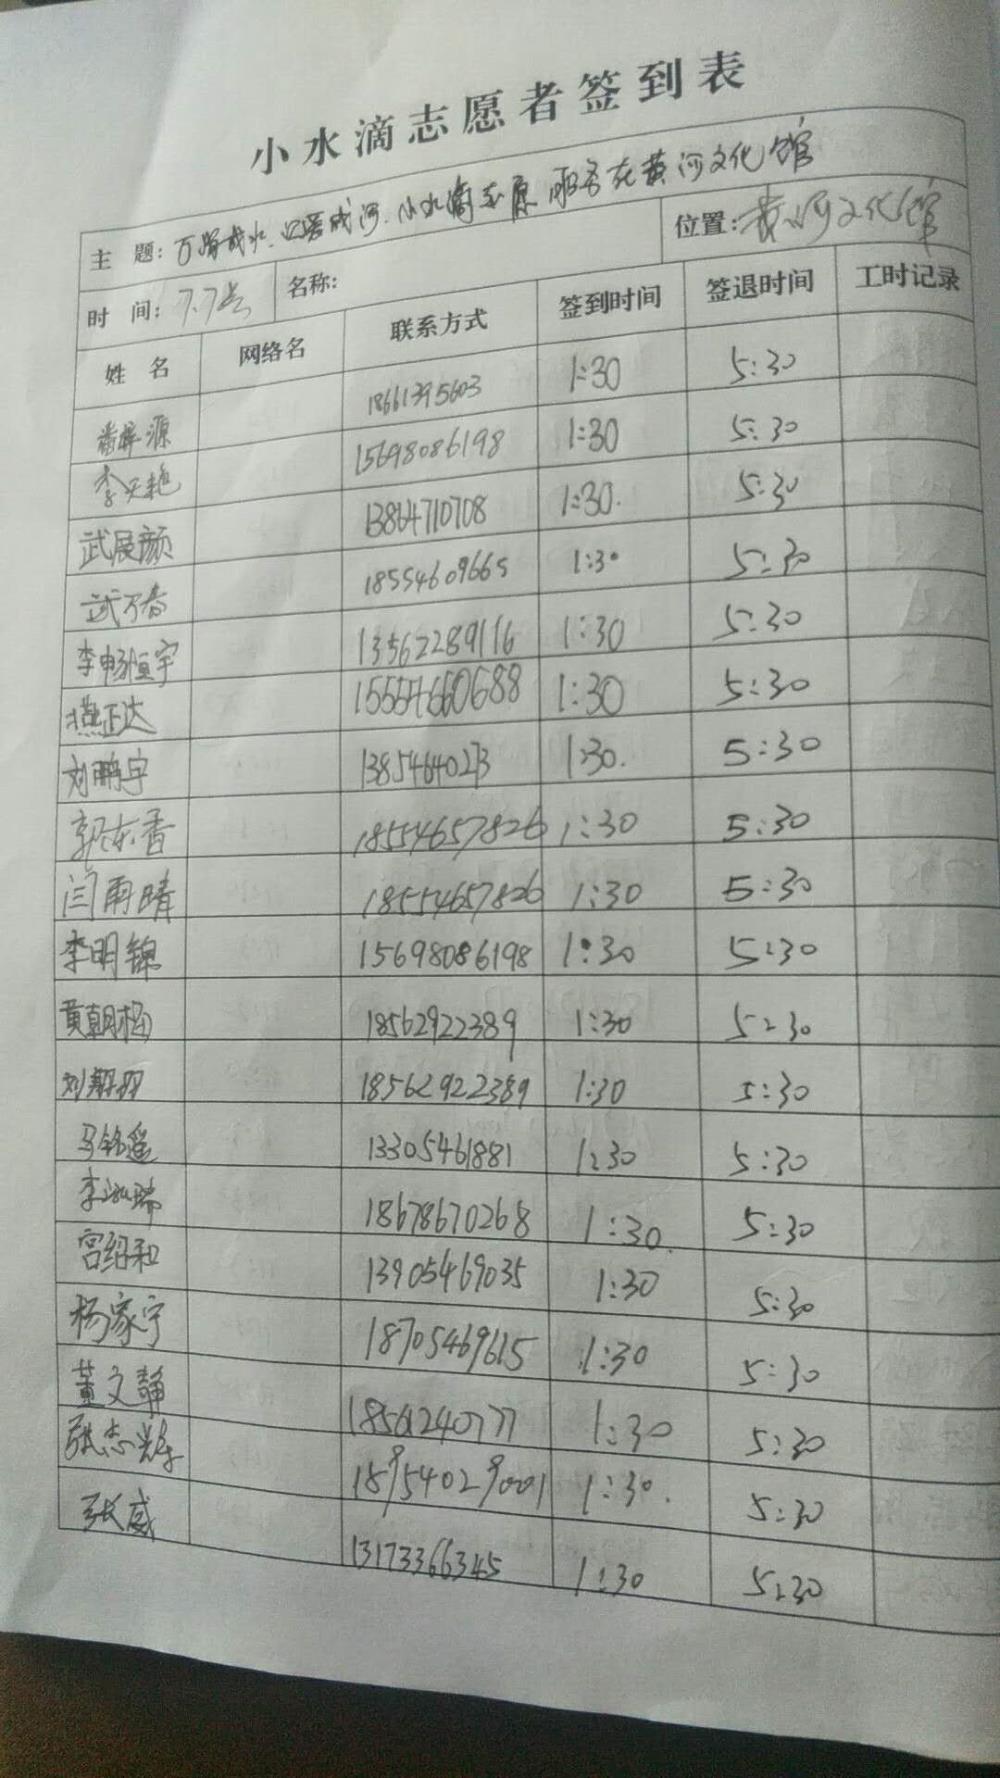 小水滴志愿者签到表
主 题: 万 成水. 成河.小水滴志愿服务在黄河文化馆
时 间: 7.7号 名称: 位置: 黄河文化馆
姓 名 网络名 联系方式 签到时间 签退时间 工时记录
潘梓源 18661395603 1:30 5:30
李天艳 15698086198 1:30 5:30
武晨颜 13864710708 1:30. 5:30
武 香 18554609665 1:30 5:30
李畅恒宇 13562289116 1:30 5:30
燕正达 1:30 5:30
刘鹏宇 13854640273 1:30. 5:30
郭东香 18554657826 1:30 5:30
闫雨晴 18554657826 1:30 5:30
李明锦 15698086198 1:30 5:30
黄朝 18562922389 1:30 5:30
刘 18562922389 1:30 5:30
马铭遥 13305461881 1:30 5:30
李 瑞 18678670268 1:30. 5:30
宫绍和 13905469035 1:30 5:30
杨家宁 18705469615 1:30 5:30
董文静 18561240777 1:30 5:30
张志 18954029001 1:30. 5:30
张威 13173366345 1:30 5:30